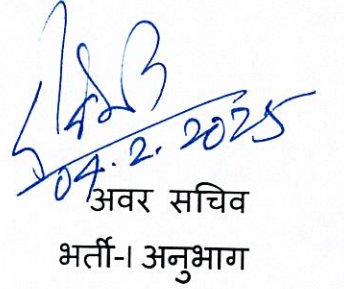 04.2.2025
अवर सचिव
भर्ती-I अनुभाग